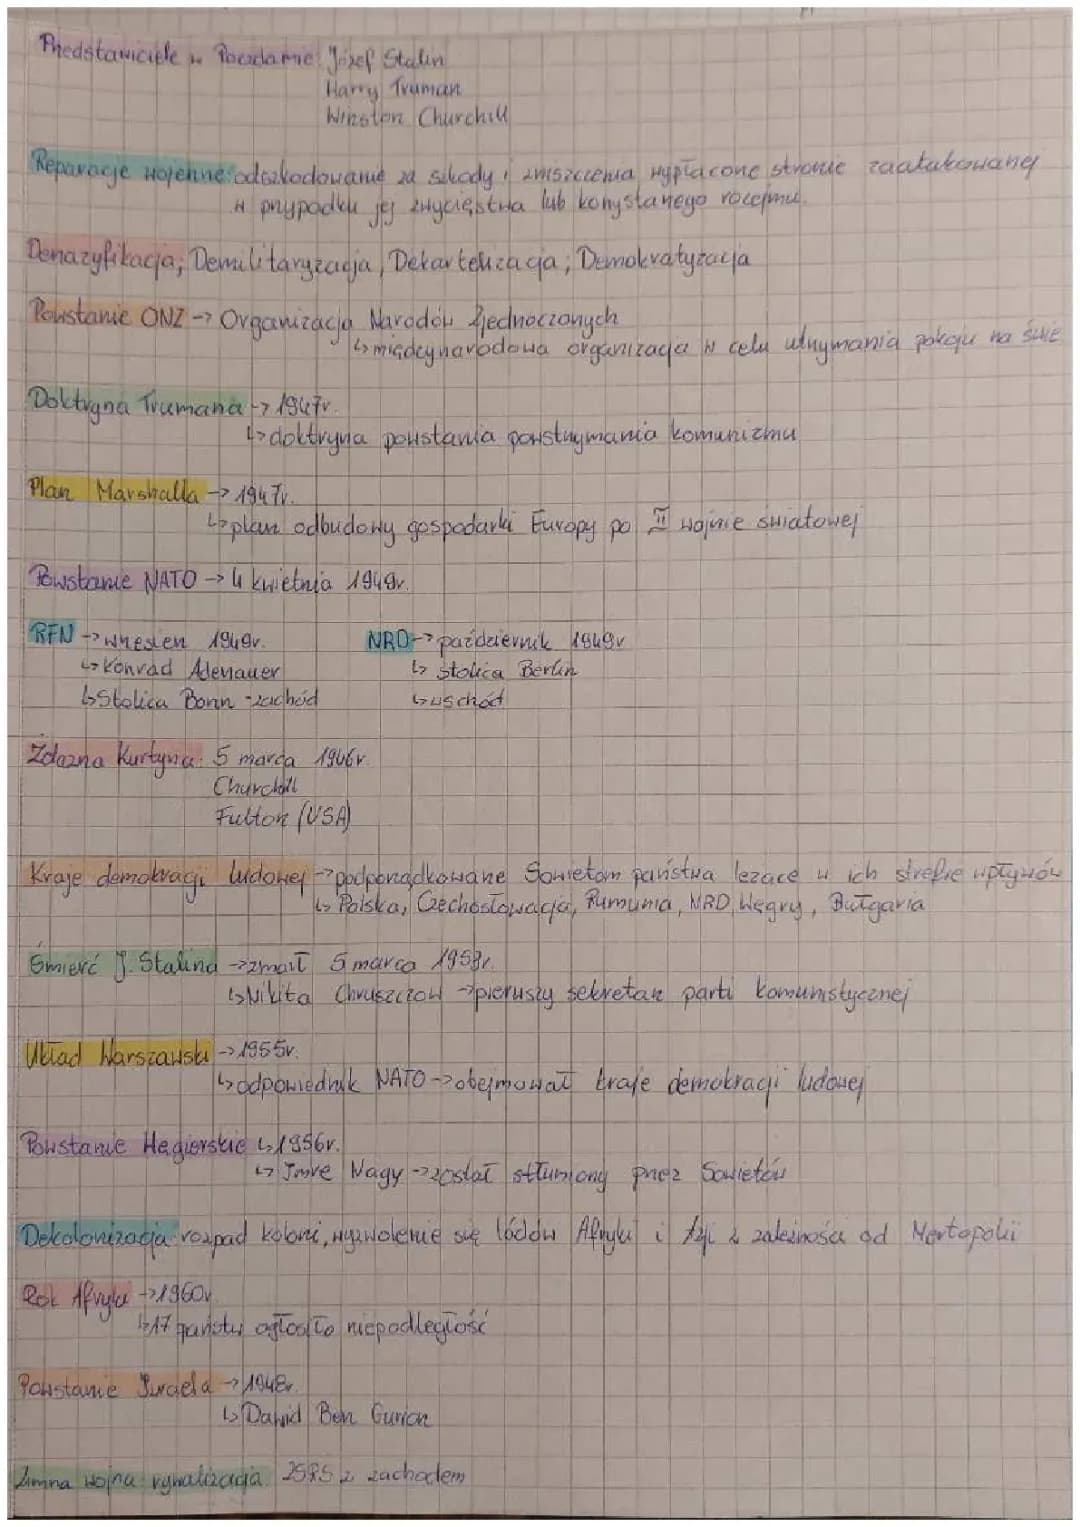 Przedstawiciele w Poczdamie: Józef Stalin
Harry Truman
Winston Churchill
Reparacje wojenne: odszkodowanie za szkody i zniszczenia wypłacone stronie zaatakowanej
w przypadku jej zwycięstwa lub korzystanego rozejmu.
Denazyfikacja; Demilitaryzacja; Dekartelizacja; Demokratyzacja
Powstanie ONZ -> Organizacja Narodów Zjednoczonych
↳ międzynarodowa organizacja w celu utrzymania pokoju na świe
Doktryna Trumana -> 1947r.
↳ doktryna powstania powstrzymania komunizmu
Plan Marshalla -> 1947r.
↳ plan odbudowy gospodarki Europy po II wojnie światowej
Powstanie NATO -> 4 kwietnia 1949r.
RFN -> wrzesien 1949r. NRD -> październik 1949r
↳ Konrad Adenauer ↳ stolica Berlin
↳ Stolica Bonn - zachód ↳ wschód
Żelazna Kurtyna: 5 marca 1946r.
Churchill
Fulton (USA)
Kraje demokracji ludowej -> podporządkowane Sowietom państwa leżące w ich strefie wpływów
↳ Polska, Czechosłowacja, Rumunia, NRD, Węgry, Bułgaria
Śmierć J. Stalina -> zmarł 5 marca 1953r.
↳ Nikita Chruszczow -> pierwszy sekretarz parti komunistycznej
Układ Warszawski -> 1955r.
↳ odpowiednik NATO -> obejmował kraje demokracji ludowej
Powstanie Węgierskie ↳ 1956r.
↳ Imre Nagy -> został stłumiony przez Sowietów
Dekolonizacja rozpad koloni, wyzwolenie się lódów Afryki i Azji z zależności od Mertopolii
Rok Afryki -> 1960r.
↳ 17 państw ogłosiło niepodległość
Powstanie Izraela -> 1948r.
↳ Dawid Ben Gurion
Zimna wojna: rywalizacja ZSRS z zachodem